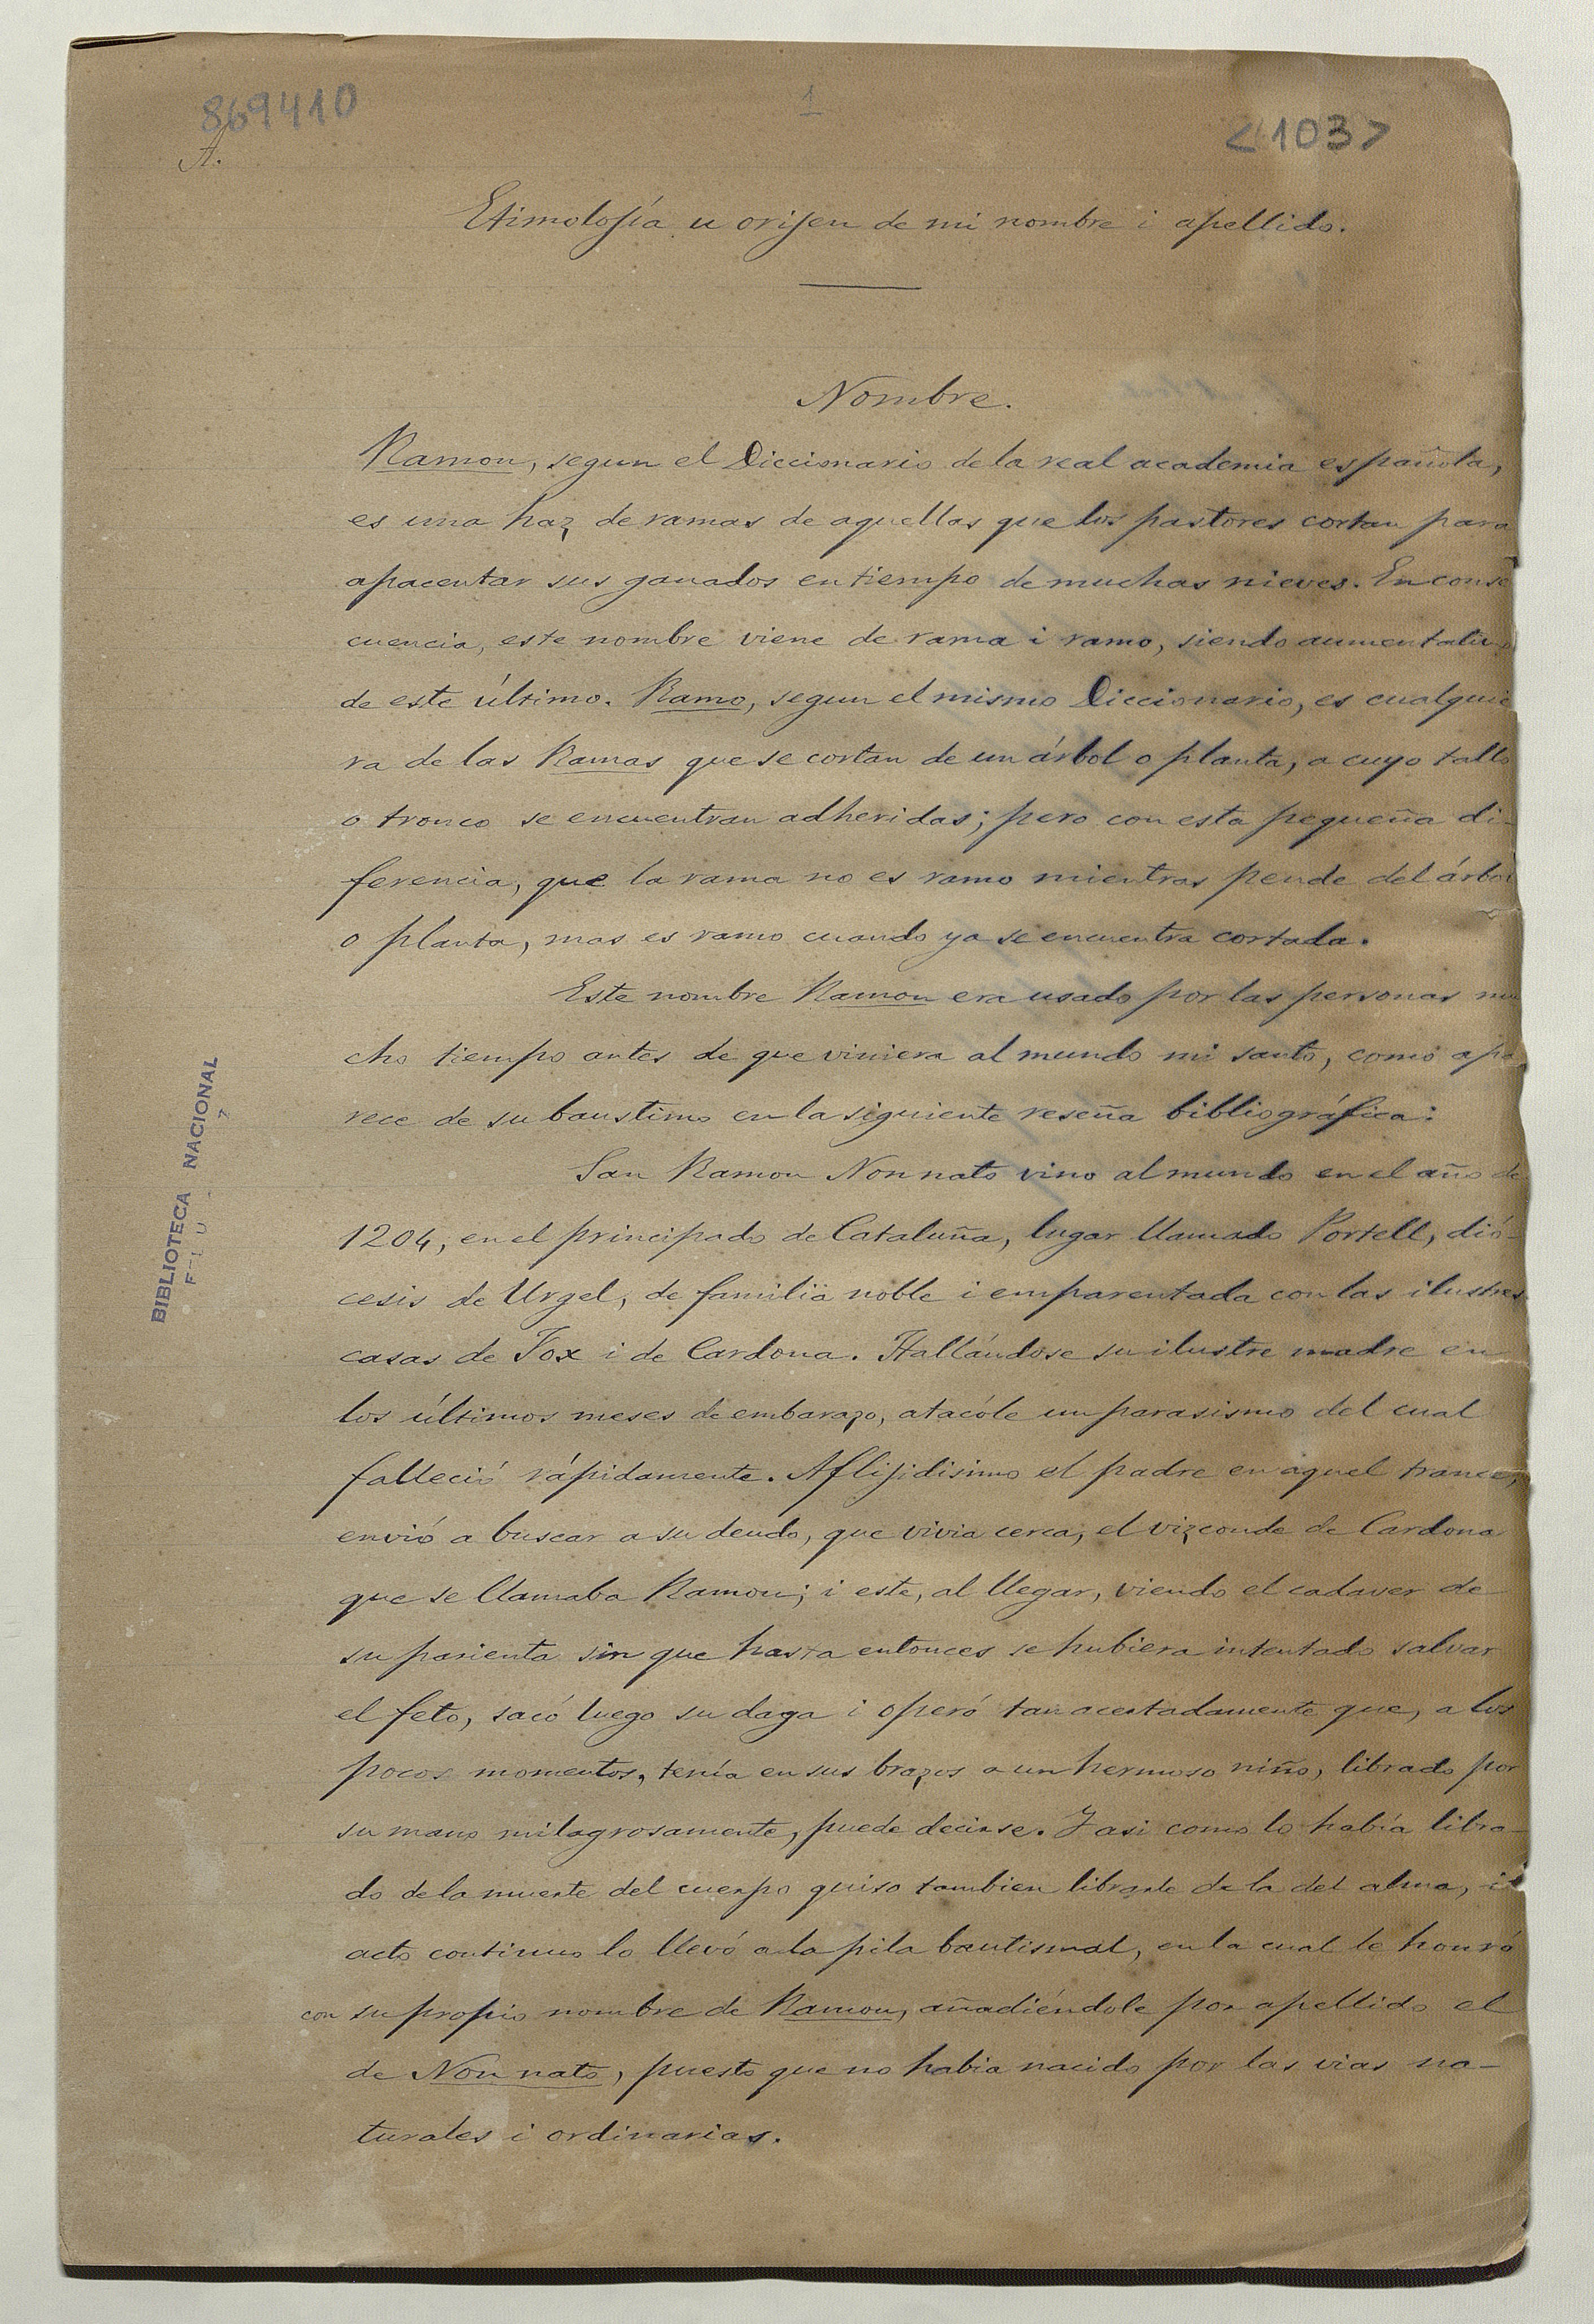 869410
1
<103>
A.
Etimolojía u orijen de mi nombre i apellido.
Nombre.
Ramon, segun el Diccionario de la real academia española,
es una haz de ramas de aquellas que los pastores cortan para
apacentar sus ganados en tiempo de muchas nieves. En conse
cuencia, este nombre viene de rama i ramo, siendo aumentativo
de este último. Ramo, segun el mismo Diccionario, es cualquie
ra de las Ramas que se cortan de un árbol o planta, a cuyo tallo
o tronco se encuentran adheridas; pero con esta pequeña di-
ferencia, que la rama no es ramo mientras pende del árbol
o planta, mas es ramo cuando ya se encuentra cortada.
Este nombre Ramon era usado por las personas mu
cho tiempo antes de que viniera al mundo mi santo, como apa
rece de su baustimo en la siguiente reseña bibliográfica:
San Ramon Nonnato vino al mundo en el año de
1204, en el principado de Cataluña, lugar llamado Portell, dió-
cesis de Urgel, de familia noble i emparentada con las ilustres
casas de Fox i de Cardona. Hallándose su ilustre madre en
los últimos meses de embarazo, atacóle un parasismo del cual
falleció rápidamente. Aflijidisimo el padre en aquel trance,
envió a buscar a su deudo, que vivia cerca, el vizconde de Cardona
que se llamaba Ramon; i este, al llegar, viendo el cadaver de
su parienta sin que hasta entonces se hubiera intentado salvar
el feto, sacó luego su daga i operó tan acertadamente que, a los
pocos momentos, tenía en sus brazos a un hermoso niño, librado por
su mano milagrosamente, puede decirse. I asi como lo había libra-
do de la muerte del cuerpo quiso tambien librarle de la del alma, i
acto continuo lo llevó a la pila bautismal, en la cual le honró
con su propio nombre de Ramon, añadiéndole por apellido el
de Non nato, puesto que no habia nacido por las vias na-
turales i ordinarias.
BIBLIOTECA NACIONAL